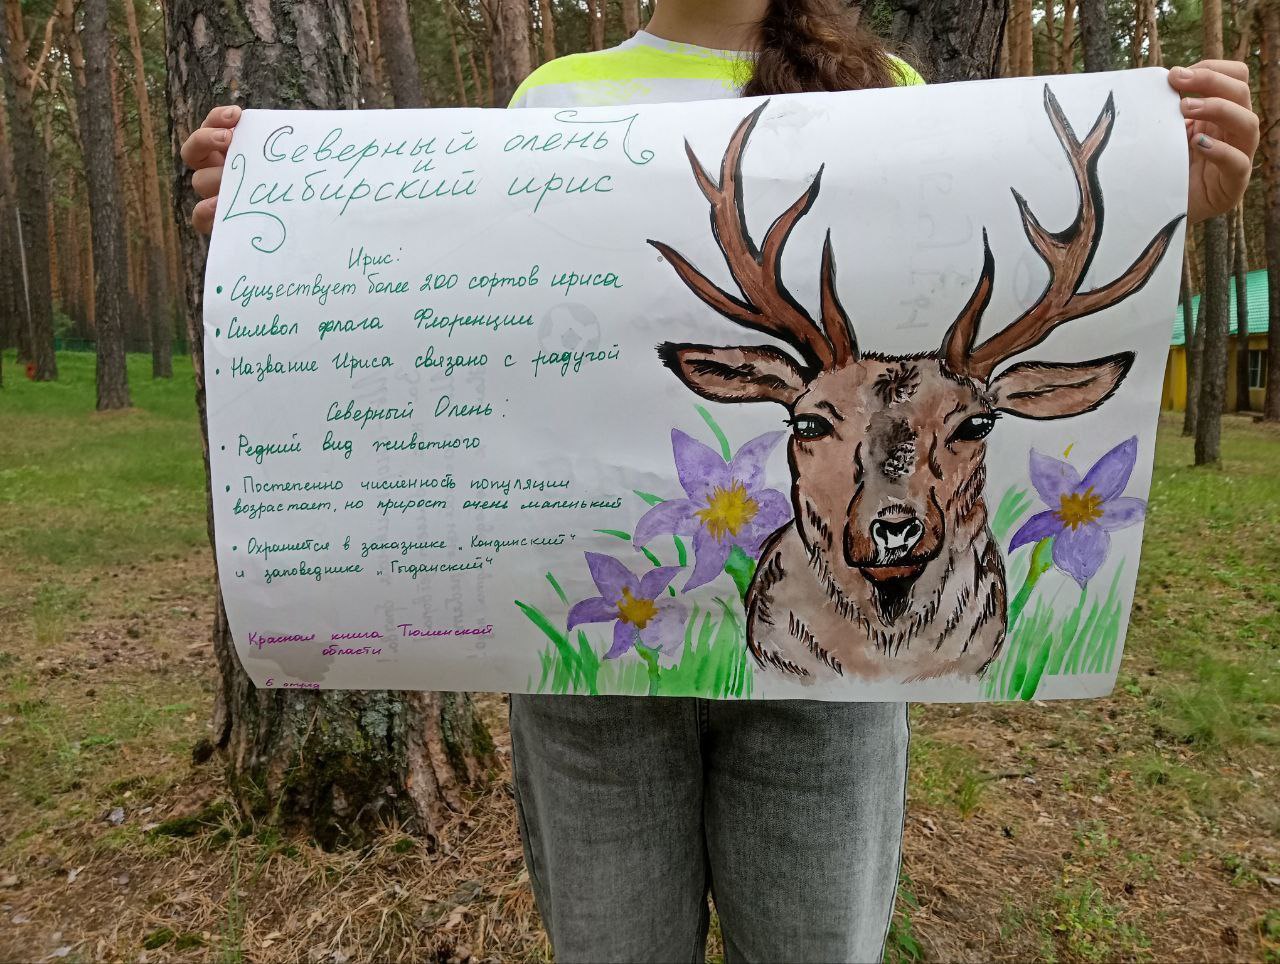 Северный олень
и
сибирский ирис
Ирис:
• Существует более 200 сортов ириса
• Символ флага Флоренции
• Название Ириса связано с радугой
Северный Олень:
• Редкий вид животного
• Постепенно численность популяции
возрастает, но прирост очень маленький
• Охраняется в заказнике „Кондинский“
и заповеднике „Гыданский“
Красная книга Тюменской
области
6 отряд